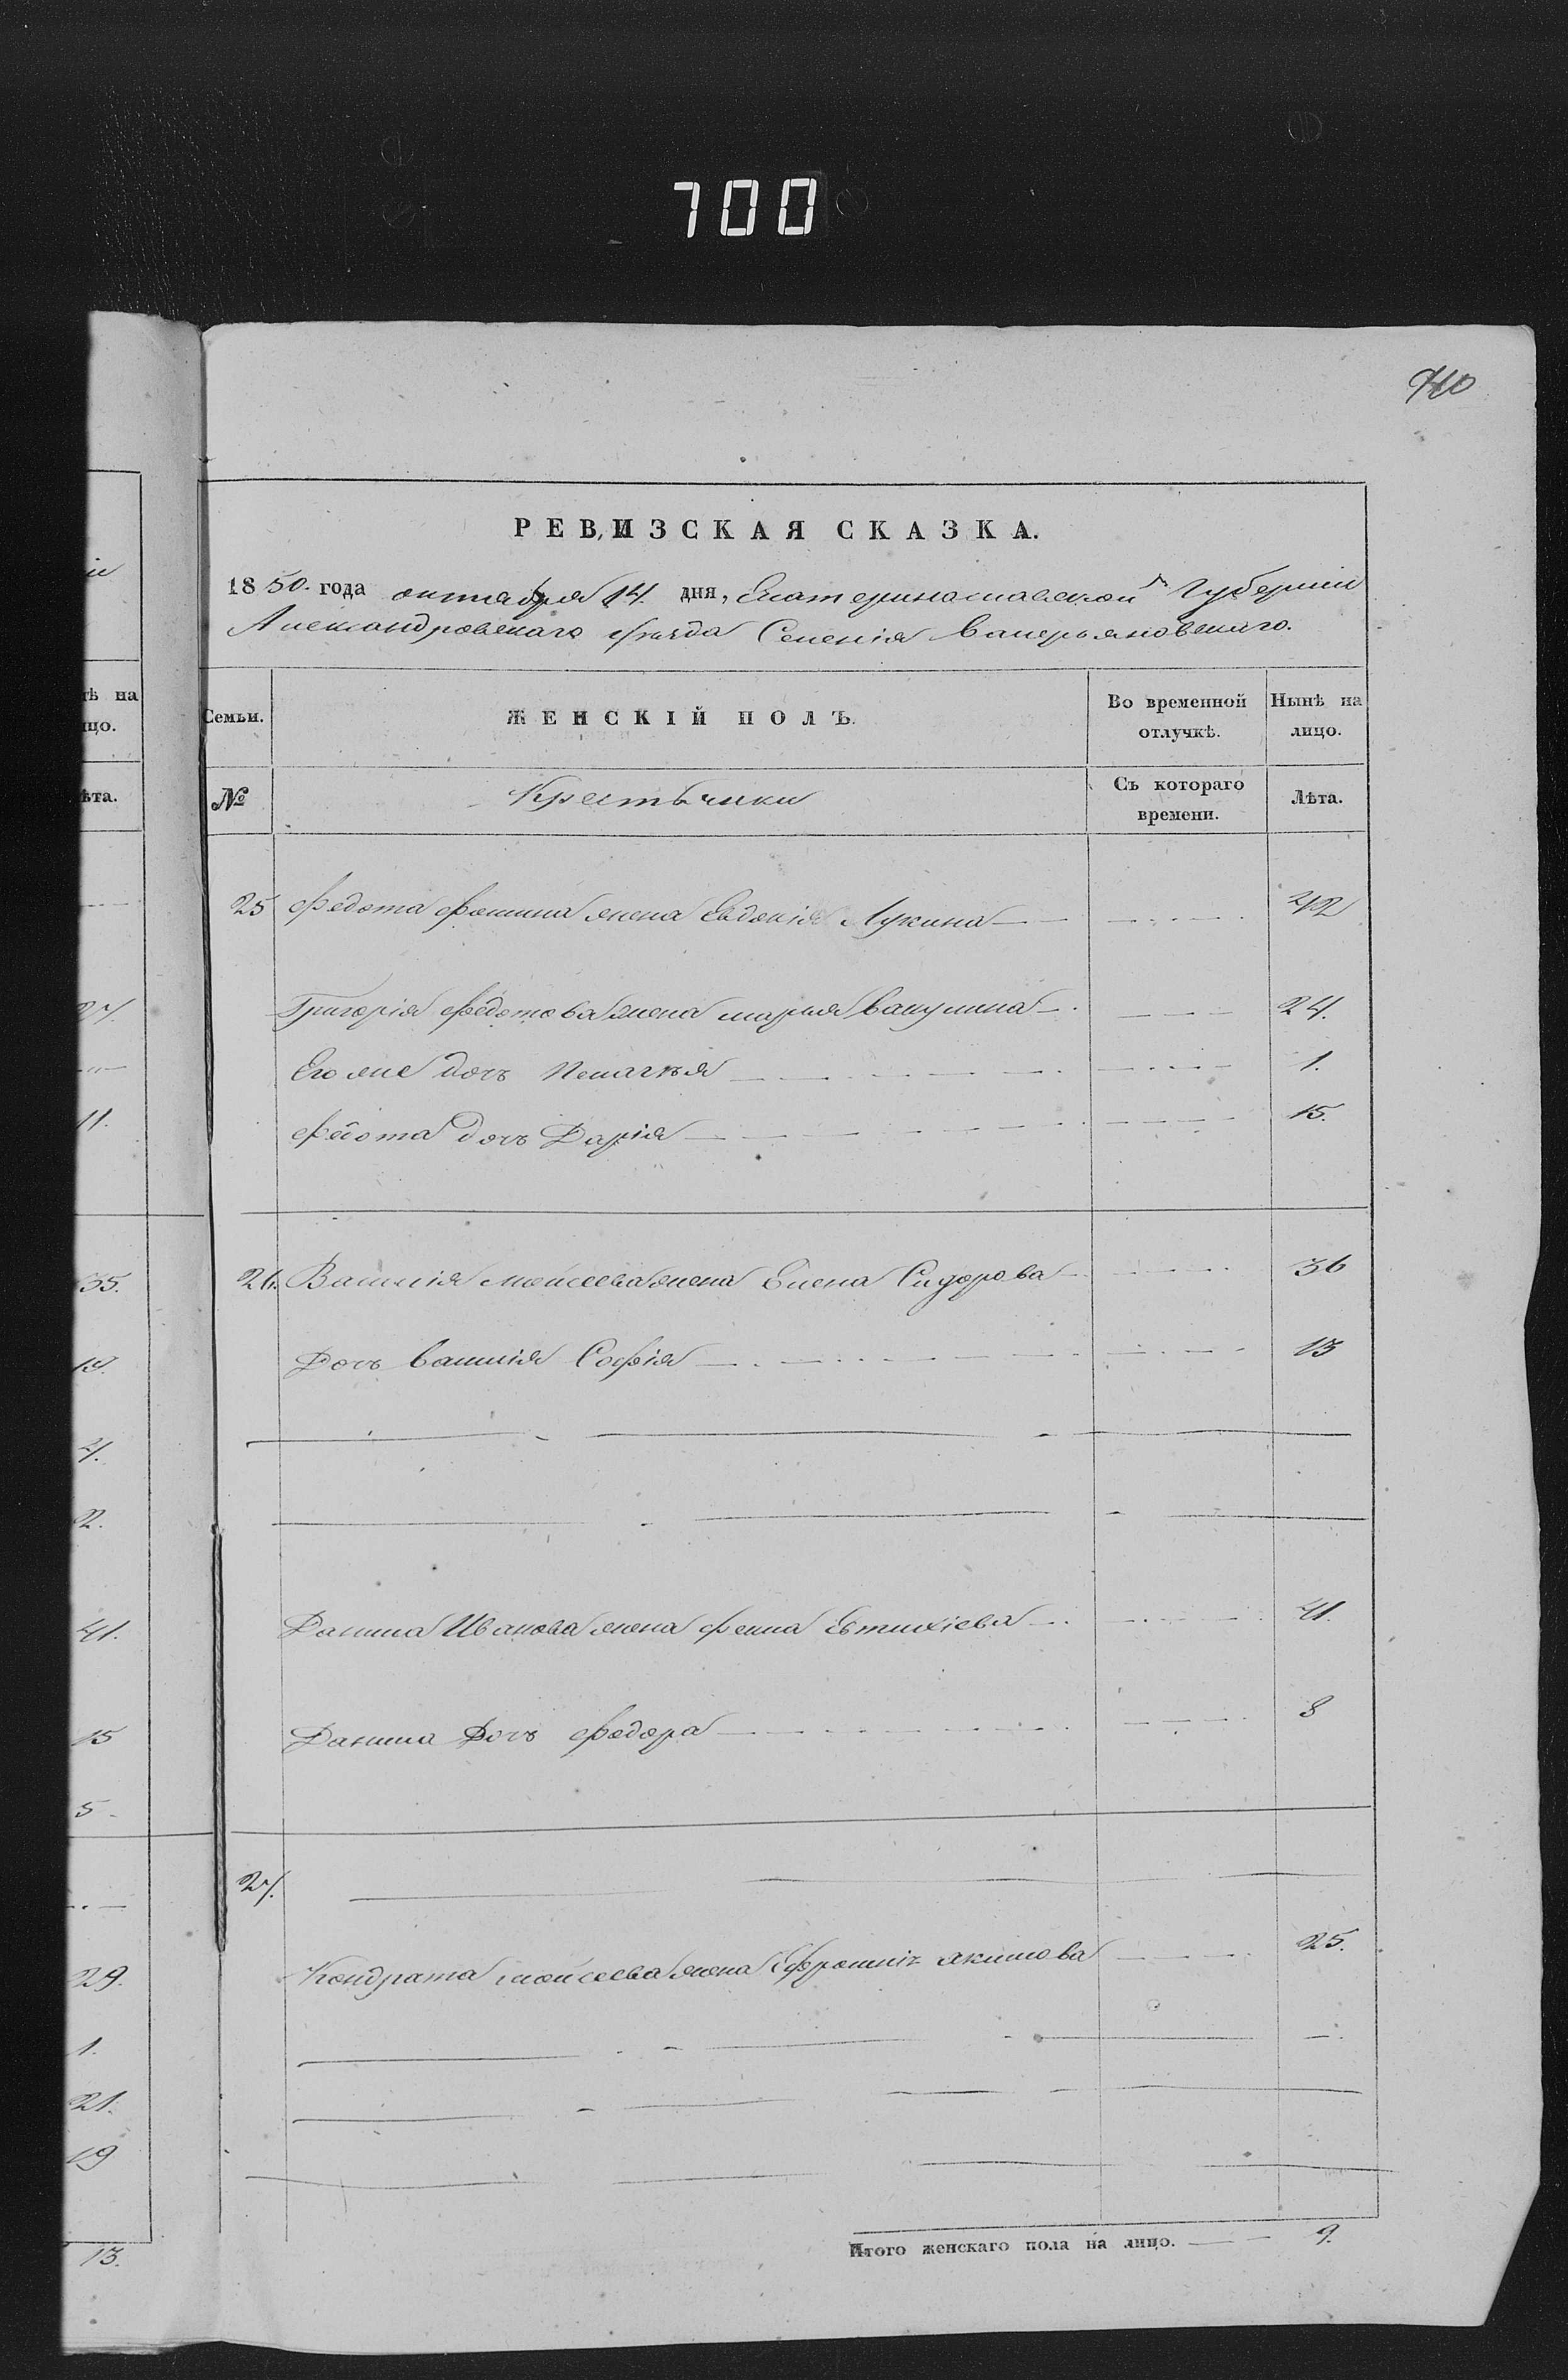 700
710
РЕВИЗСКАЯ СКАЗКА.
1850. года октября 14. дня, Екатеринославской Губерніи
Александровскаго уѣзда Селенія Валерьяновскаго.
Семьи.
ЖЕНСКІЙ ПОЛЪ.
Во временной отлучкѣ.
Нынѣ на лицо.
№
Крестьянки
Съ котораго времени.
Лѣта.
25 Федота Фомина жена Евдокія Лукина 42
Григорія Федотова жена марья Вакулина 24.
Его же дочь Пелагѣя 1.
Федота дочь Дарія 15.
26. Василія Моисеева жена Елена Сидорова 36
Дочь Василія Софія 13
Данила Иванова жена Фекла Евтихіева 41.
Данила Дочь Федора 8
27.
Кондрата моисеева жена Якимова 25.
Итого женскаго пола на лицо. 9.
тѣ на
цо.
ѣта.
27.
11.
35.
19.
4.
2.
41.
15
5
29.
1.
21.
19
13.